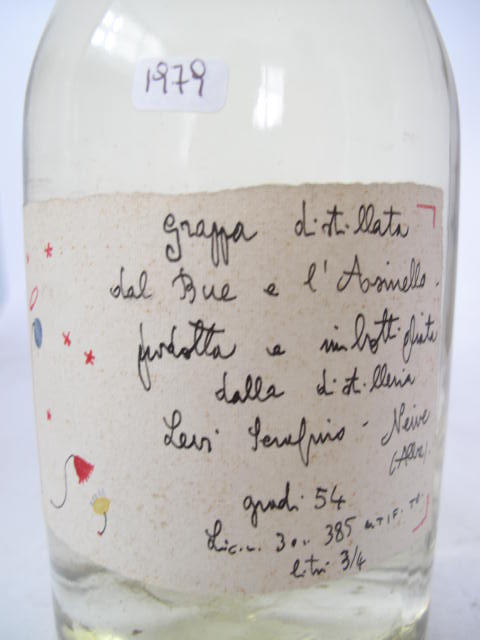 1979
Grappa distillata
dal Bue e l'Asinello.
prodotta e imbottigliata
dalla distilleria
Levi Serafino - Neive
(Alba).
gradi 54
Lic. 385 U.T.I.F.
litri 3/4